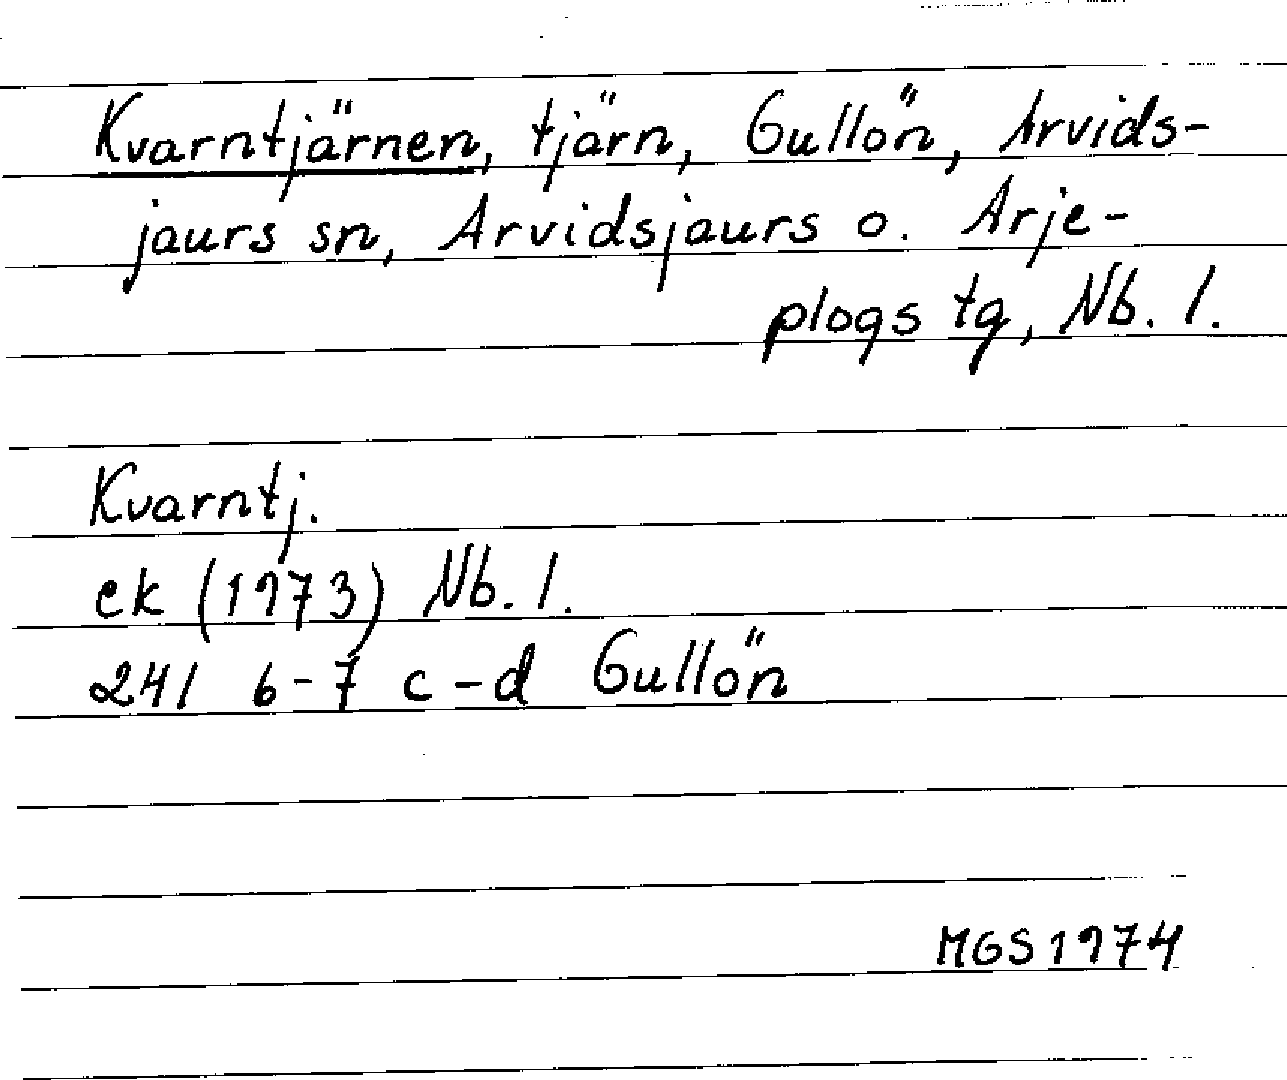 Kvarntjärnen, tjärn, Gullön, Arvids-
jaurs sn, Arvidsjaurs o. Arje-
plogs tg, Nb. l.
Kvarntj.
ek (1973) Nb. l.
241 6-7 c-d Gullön
MGS 1974